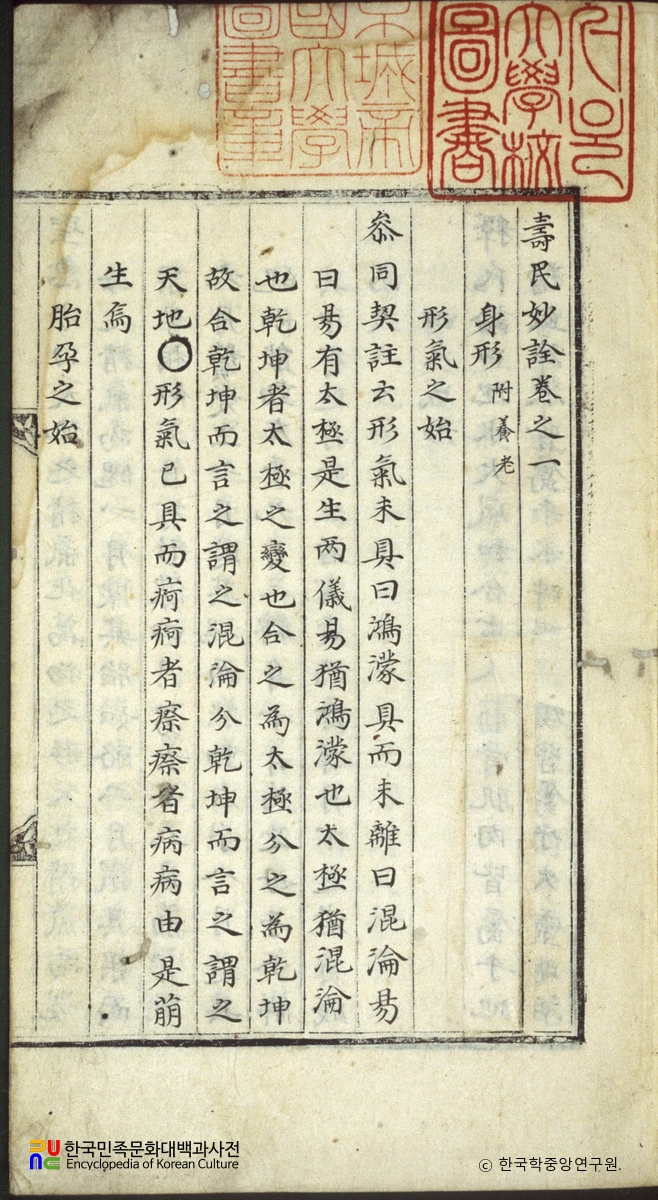 壽民妙詮卷之一
身形 附養老
形氣之始
叅同契註云形氣未具曰鴻濛具而未離曰混淪易
曰易有太極是生两儀易猶鴻濛也太極猶混淪
也乾坤者太極之變也合之為太極分之為乾坤
故合乾坤而言之謂之混淪分乾坤而言之謂之
天地○形氣已具而痾痾者瘵瘵者病病由是萠
生焉
胎孕之始
大學校
圖書
한국민족문화대백과사전
Encyclopedia of Korean Culture
© 한국학중앙연구원.